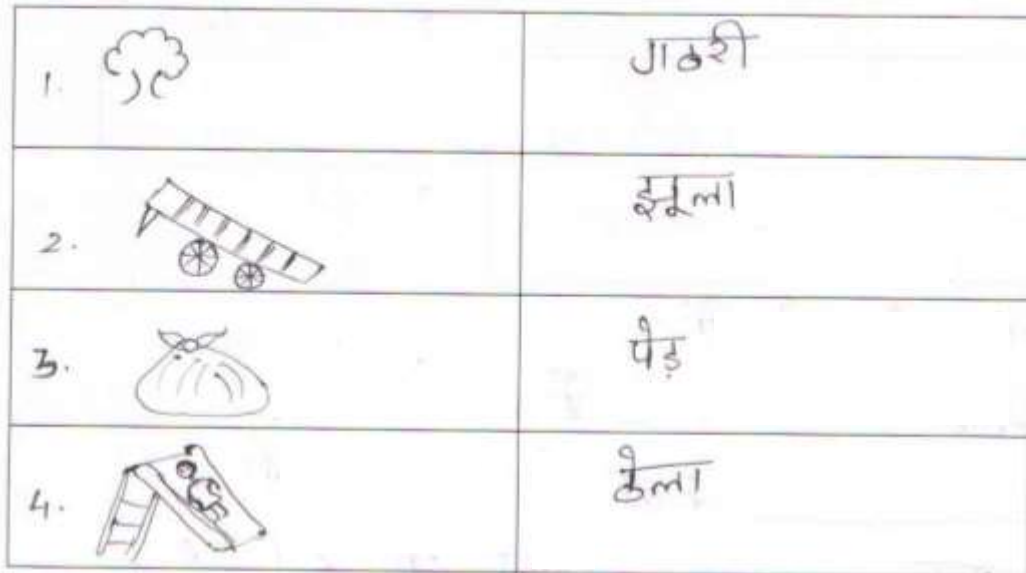 1. गठरी
2. झूला
3. पेड़
4. ठेला